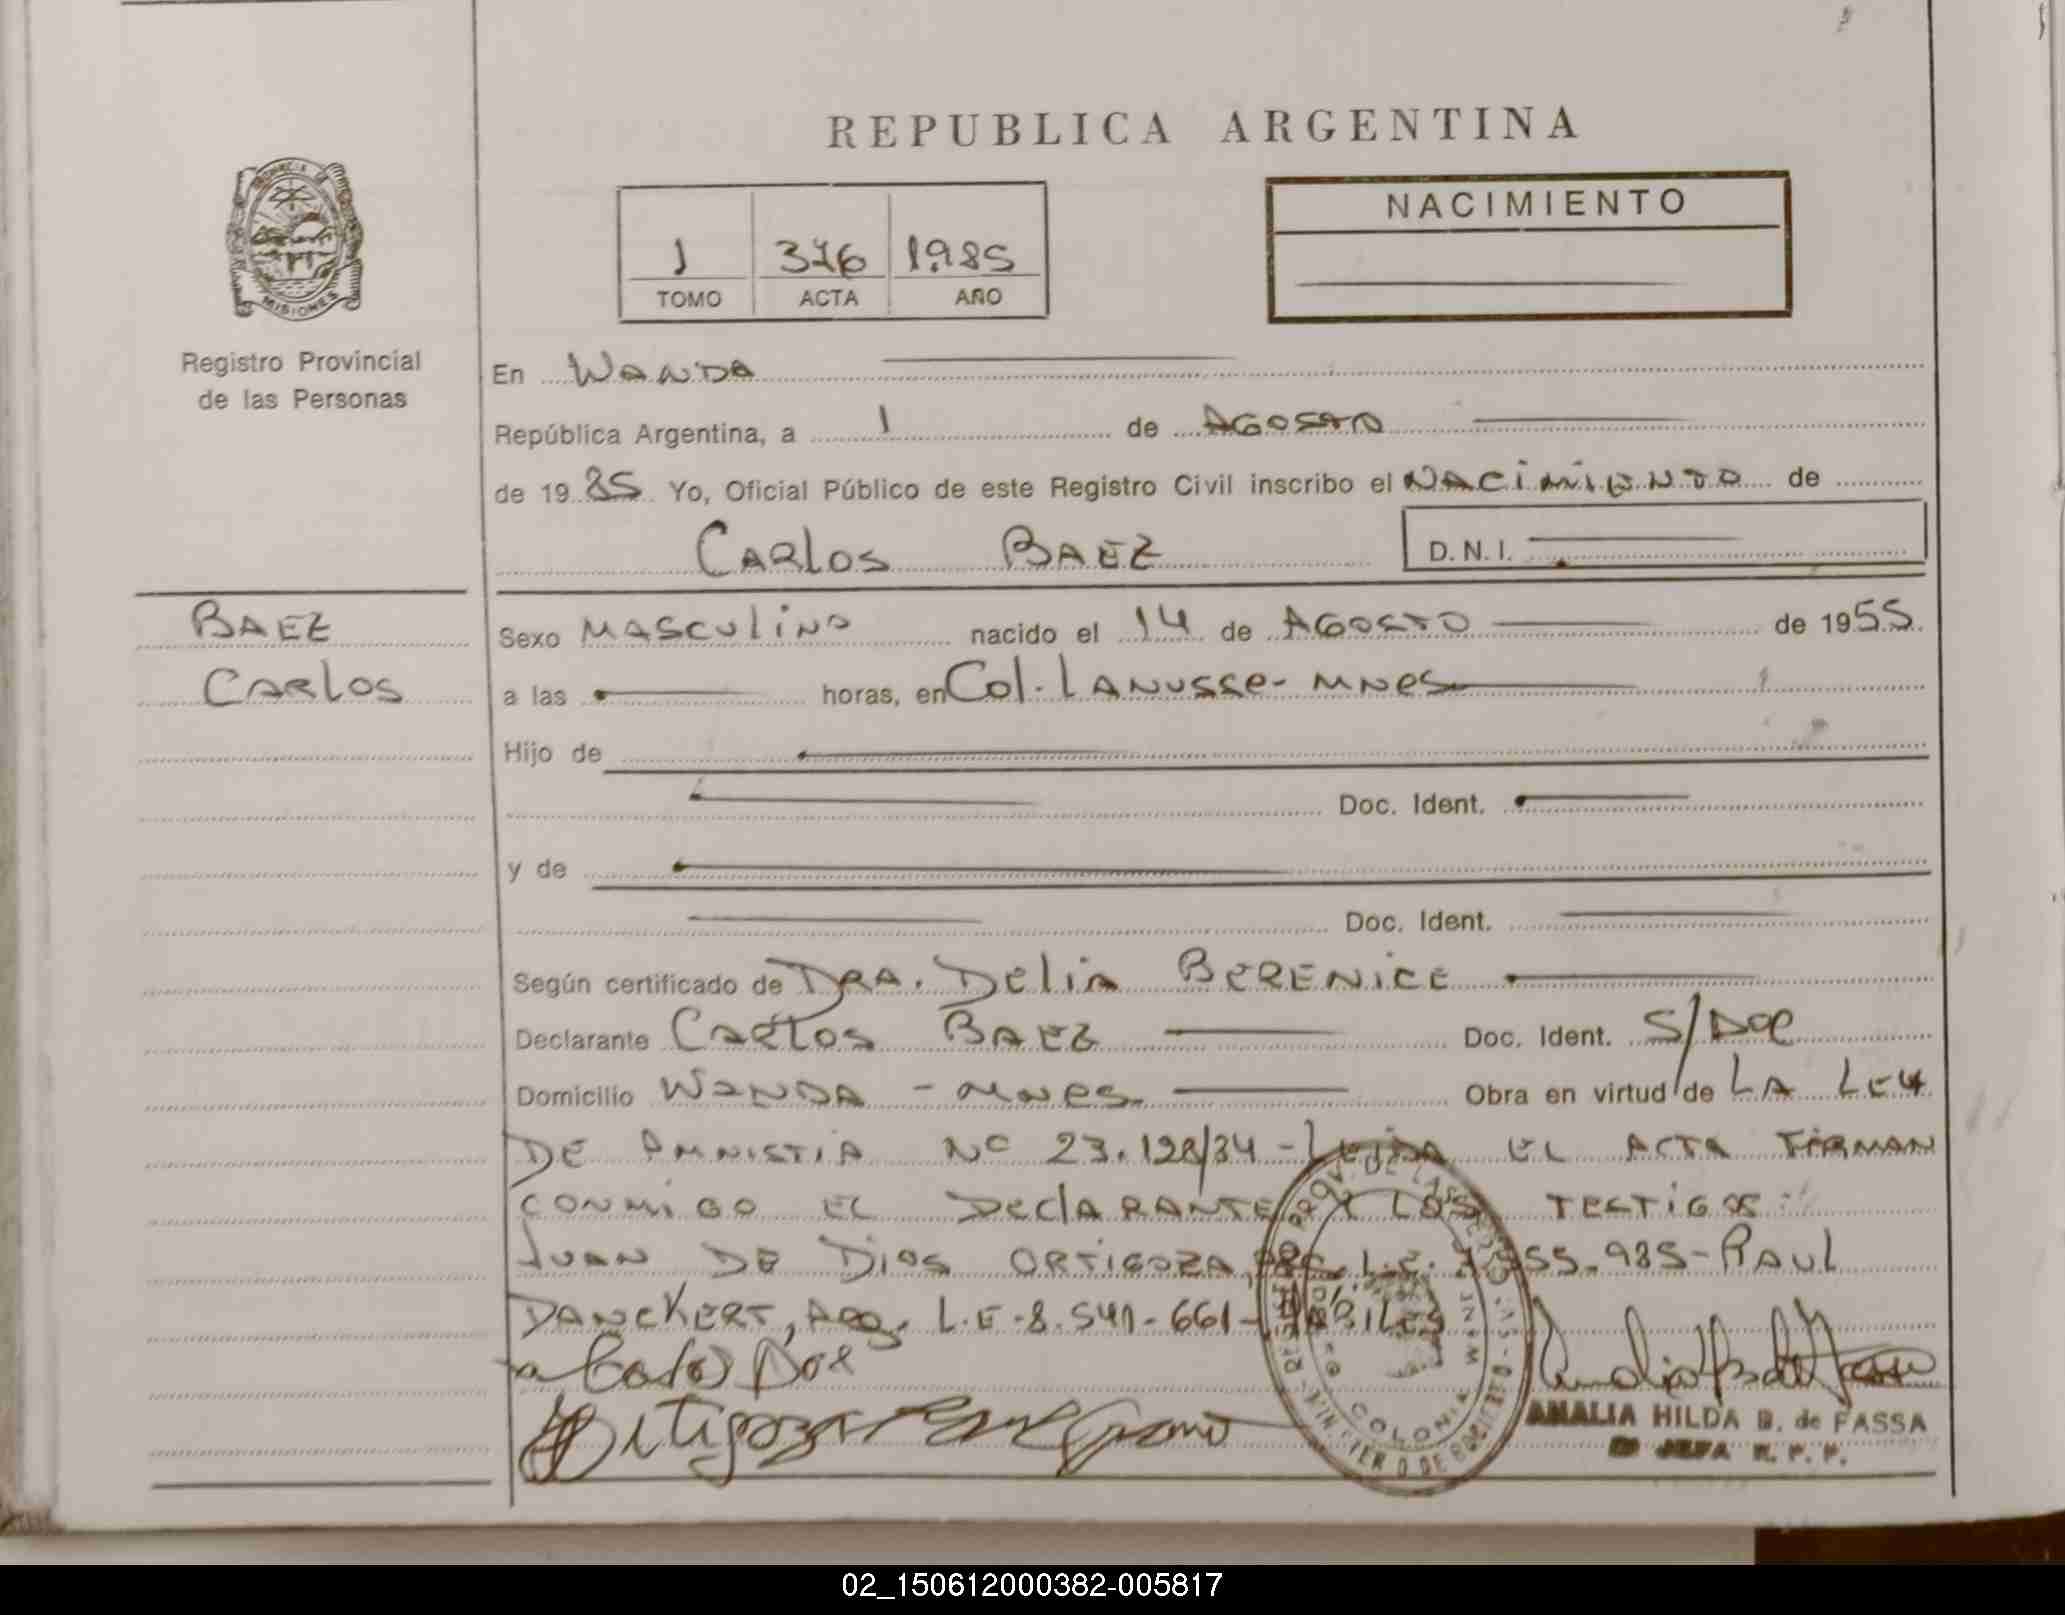 REPUBLICA ARGENTINA
PROVINCIA DE
MISIONES
Registro Provincial
de las Personas
1 376 1985
TOMO ACTA AÑO
NACIMIENTO
En WANDA
República Argentina, a 1 de AGOSTO
de 1985 Yo, Oficial Público de este Registro Civil inscribo el NACIMIENTO de
CARLOS BAEZ
D.N.I.
BAEZ
CARLOS
Sexo MASCULINO nacido el 14 de AGOSTO de 1955
a las horas, en Col. LANUSSE- MNES
Hijo de
Doc. Ident.
y de
Doc. Ident.
Según certificado de DRA. DELIA BERENICE
Declarante CARLOS BAEZ Doc. Ident. S/DOC
Domicilio WANDA - MNES. Obra en virtud de LA LEY
DE AMNISTIA Nº 23.128/84 - LEIDA EL ACTA FIRMAN
CONMIGO EL DECLARANTE Y LOS TESTIGOS
JUAN DE DIOS ORTIGOZA, L.E. 985- RAUL
DANCKERT, ARG. L.E-8.541-661- HABILES
COLONIA
AMALIA HILDA B. de FASSA
JEFA R. P. P.
02_150612000382-005817